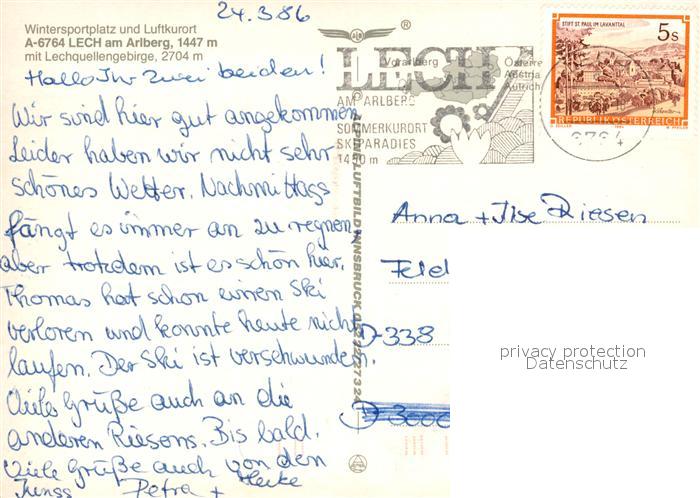 24.3.86
Wintersportplatz und Luftkurort
A-6764 LECH am Arlberg, 1447 m
mit Lechquellengebirge, 2704 m
Hallo Ihr zwei beiden!
Wir sind hier gut angekommen.
Leider haben wir nicht sehr
schönes Wetter. Nachmittags
fängt es immer an zu regnen,
aber trotzdem ist es schön hier.
Thomas hat schon einen Ski
verloren und konnte heute nicht
laufen. Der Ski ist verschwunden.
Viele Grüße auch an die
anderen Riesens. Bis bald.
Viele Grüße auch von den
Jungs Petra + Heike
ALPINE-LUFTBILD INNSBRUCK
LECH
Vorarlberg
Österre
Austria
Autrich
AM ARLBERG
SOMMERKURORT
SKIPARADIES
1450 m
STIFT ST. PAUL IM LAVANTTAL
5s
REPUBLIK ÖSTERREICH
Anna + Ilse Riesen
Feld
D-338
D-3000
privacy protection
Datenschutz